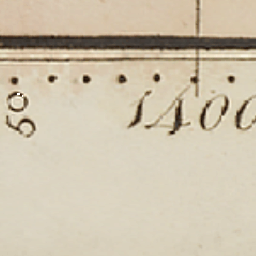 50
1400